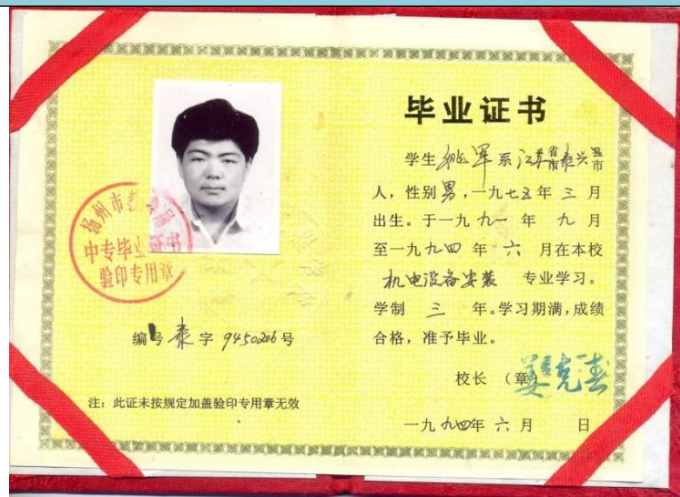 毕业证书
学生姚军系江苏省泰兴县市
人，性别男，一九七五年三月
出生。于一九九一年九月
至一九九四年六月在本校
机电设备安装 专业学习。
学制三年。学习期满，成绩
合格，准予毕业。
校长（章）
一九九四年六月 日
扬州市
中专毕业证书
验印专用章
编号泰字9450206号
注：此证未按规定加盖验印专用章无效